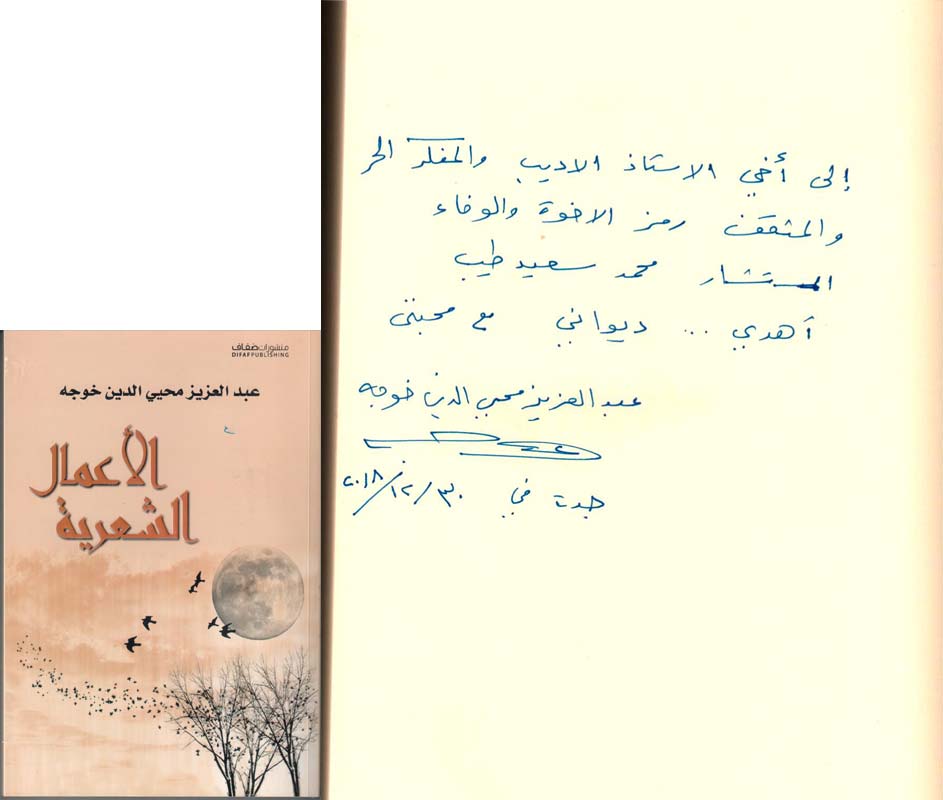 منشورات ضفاف
DIFAF PUBLISHING
عبد العزيز محيي الدين خوجه
الأعمال
الشعرية
إلى أخي الاستاذ الاديب والمفكر الحر
والمثقف رمز الاخوة والوفاء
المستشار محمد سعيد طيب
أهدي ... ديواني مع محبتي
عبد العزيز محيي الدين خوجه
جدة في ٣٠/١٢/٢٠١٨